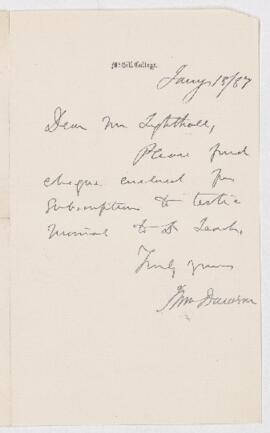 McGill College,
Jany 18/87
Dear Mr Lighthall,
Please find
cheque enclosed for
Subscription to testi-
monial to Dr Leach.
Truly yours
Wm Dawson